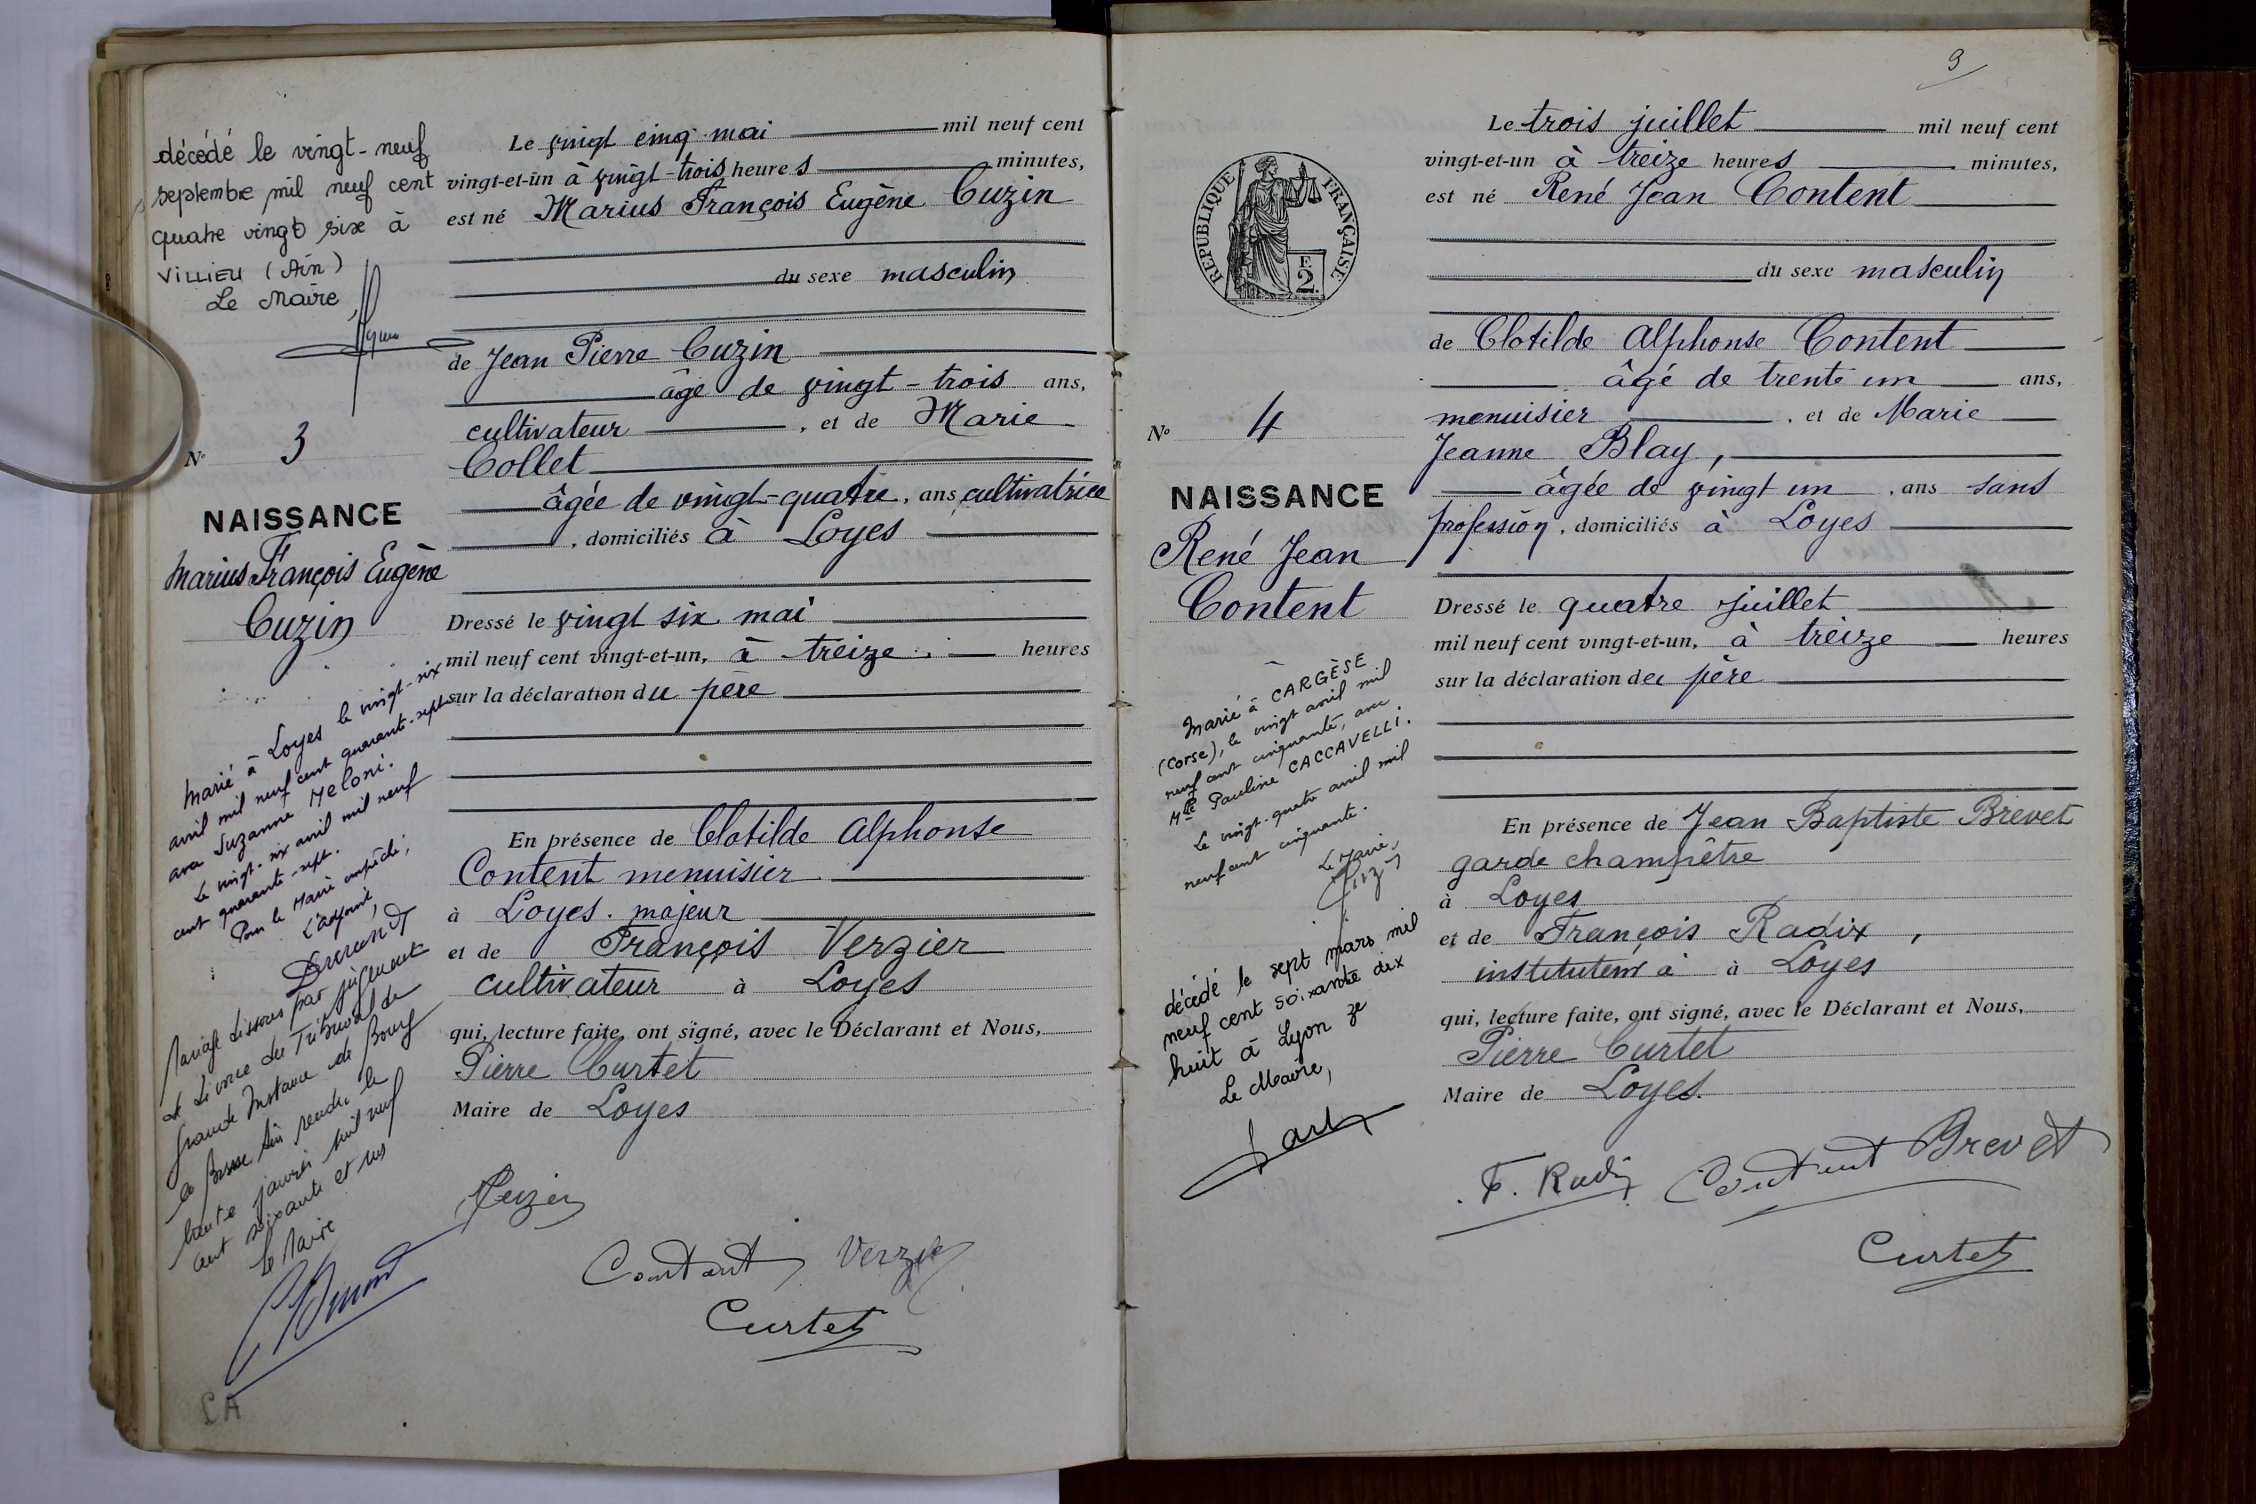 décédé le vingt-neuf
septembre mil neuf cent
quatre vingt six à
VILLIEU (Ain)
Le Maire,
N° 3
NAISSANCE
Marius François Eugène
Cuzin
Marié à Loyes le vingt-six
avril mil neuf cent quarante-sept
avec Suzanne Meloni.
Le vingt-six avril mil neuf
cent quarante-sept.
Pour le Maire empêché,
L'adjoint,
Mariage dissous par jugement
de divorce du Tribunal de
Grande Instance de Bourg
en Bresse Ain rendu le
trente janvier mil neuf
cent soixante et un
Le Maire
LA
Le vingt cinq mai mil neuf cent
vingt-et-un à vingt-trois heures minutes,
est né Marius François Eugène Cuzin
du sexe masculin
de Jean Pierre Cuzin
âgé de vingt-trois ans,
cultivateur, et de Marie
Collet
âgée de vingt-quatre, ans, cultivatrice
, domiciliés à Loyes
Dressé le vingt six mai
mil neuf cent vingt-et-un, à treize heures
sur la déclaration du père
En présence de Clotilde Alphonse
Content menuisier
à Loyes. majeur
et de François Verzier
cultivateur à Loyes
qui, lecture faite, ont signé, avec le Déclarant et Nous,
Pierre Curtet
Maire de Loyes
Cuzin
Content Verzier
Curtet
3
REPUBLIQUE FRANÇAISE
F. 2.
N° 4
NAISSANCE
René Jean
Content
Marié à CARGÈSE
(Corse), le vingt avril mil
neuf cent cinquante, avec
Mlle Pauline CACCAVELLI.
Le vingt-quatre avril mil
neuf cent cinquante.
Le Maire,
décédé le sept mars mil
neuf cent soixante dix
huit à Lyon 2e
Le Maire,
Le trois juillet mil neuf cent
vingt-et-un à treize heures minutes,
est né René Jean Content
du sexe masculin
de Clotilde Alphonse Content
âgé de trente un ans,
menuisier, et de Marie
Jeanne Blay,
âgée de vingt un, ans sans
profession, domiciliés à Loyes
Dressé le quatre juillet
mil neuf cent vingt-et-un, à treize heures
sur la déclaration du père
En présence de Jean Baptiste Brevet
garde champêtre
à Loyes
et de François Radix,
instituteur à à Loyes
qui, lecture faite, ont signé, avec le Déclarant et Nous,
Pierre Curtet
Maire de Loyes.
F. Radix Content Brevet
Curtet